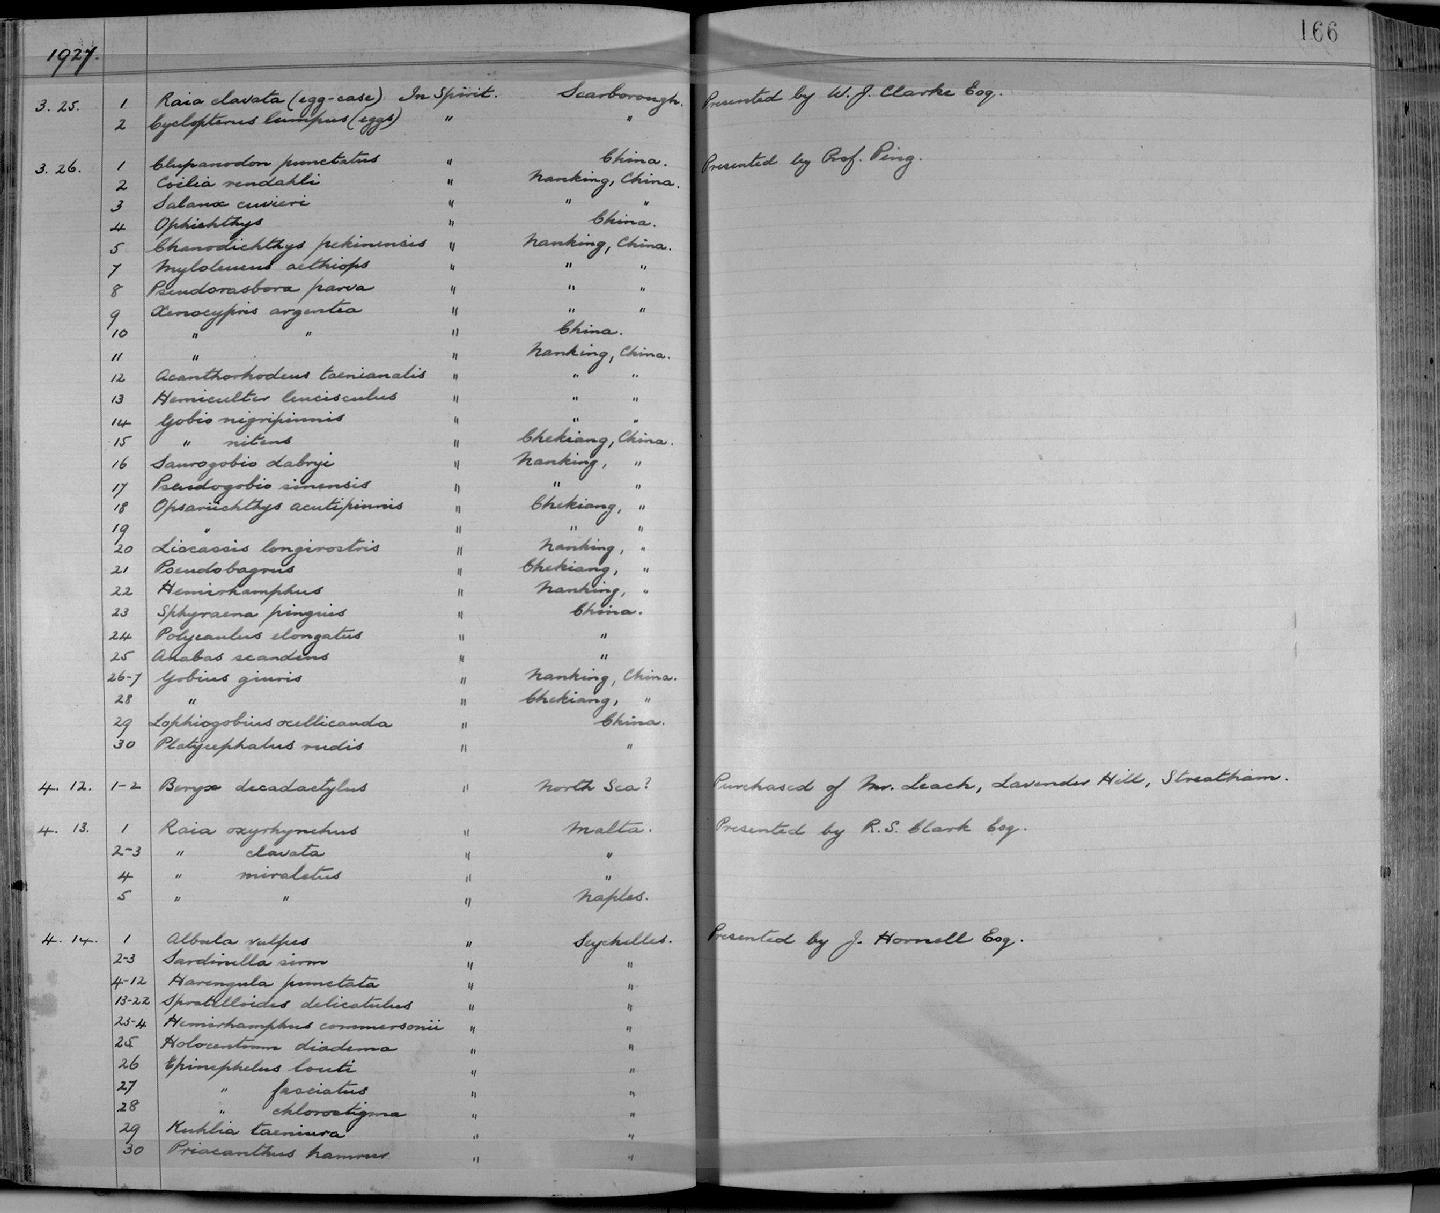 166
1927.
3. 25. 1 Raia clavata (egg-case) In Spirit. Scarborough. Presented by W. J. Clarke Esq.
2 Cyclopterus lumpus (eggs) " "
3. 26. 1 Clupanodon punctatus " China. Presented by Prof. Ping.
2 Coilia rendahli " Nanking, China.
3 Salanx cuvieri " " "
4 Ophichthys " China.
5 Chanodichthys pekinensis " Nanking, China.
7 Myloleucus aethiops " " "
8 Pseudorasbora parva " " "
9 Xenocypris argentea " " "
10 " " " China.
11 " " Nanking, China.
12 Acanthorhodeus taenianalis " " "
13 Hemiculter leucisculus " " "
14 Gobio nigripinnis " " "
15 " nitens " Chekiang, China.
16 Saurogobio dabryi " Nanking, "
17 Pseudogobio sinensis " " "
18 Opsariichthys acutipinnis " Chekiang, "
19 " " " "
20 Liocassis longirostris " Nanking, "
21 Pseudobagrus " Chekiang, "
22 Hemirhamphus " Nanking, "
23 Sphyraena pinguis " China.
24 Polycaulus elongatus " "
25 Anabas scandens " "
26-7 Gobius giuris " Nanking, China.
28 " " Chekiang, "
29 Lophiogobius ocellicauda " China.
30 Platycephalus rudis " "
4. 12. 1-2 Beryx decadactylus " North Sea? Purchased of Mr. Leach, Lavender Hill, Streatham.
4. 13. 1 Raia oxyrhynchus " Malta. Presented by R. S. Clark Esq.
2-3 " clavata " "
4 " miraletus " "
5 " " " Naples.
4. 14. 1 Albula vulpes " Seychelles. Presented by J. Hornell Esq.
2-3 Sardinella sirm " "
4-12 Harengula punctata " "
13-22 Spratelloides delicatulus " "
23-4 Hemirhamphus commersonii " "
25 Holocentrum diadema " "
26 Epinephelus louti " "
27 " fasciatus " "
28 " chlorostigma " "
29 Kuhlia taeniura " "
30 Priacanthus hamrur " "